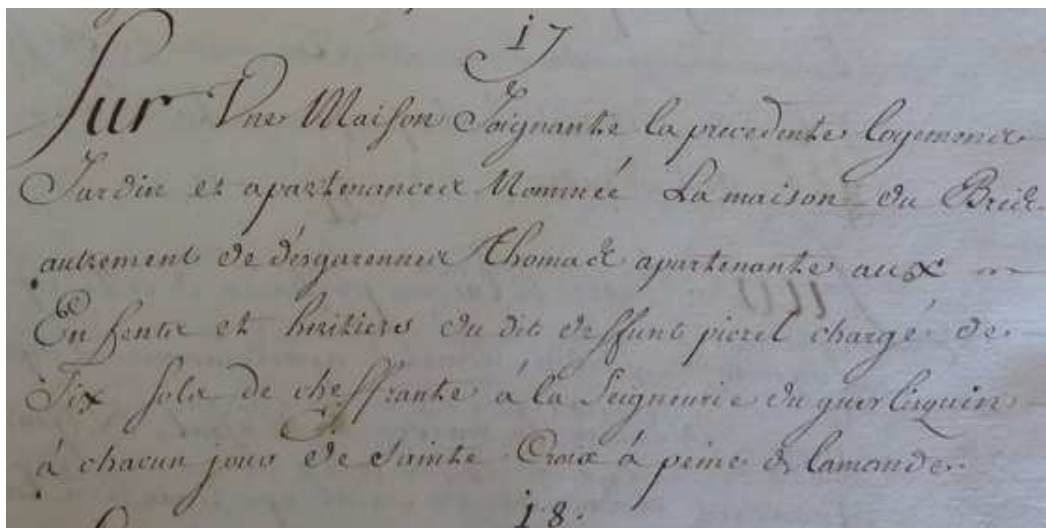 17
Sur Une Maison Joignante la precedente logements
Jardin et apartenances Nommée La maison du Brid
autrement de desgarennes Thomas apartenante aux
Enfents et heritiers du dit deffunt picrel chargé de
Six sols de cheffrante à la Seigneurie du guerlisquin
à chacun jour de Sainte Croix à peine de lamande
18.